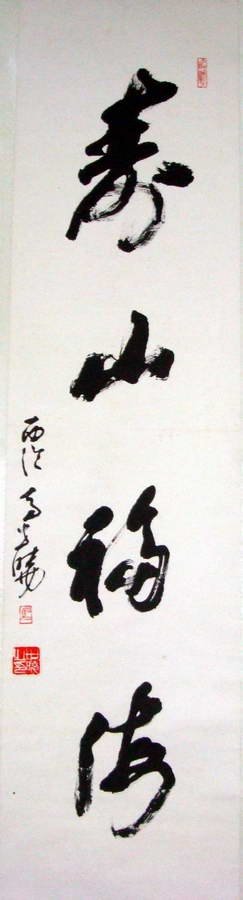 寿山福海
西泠